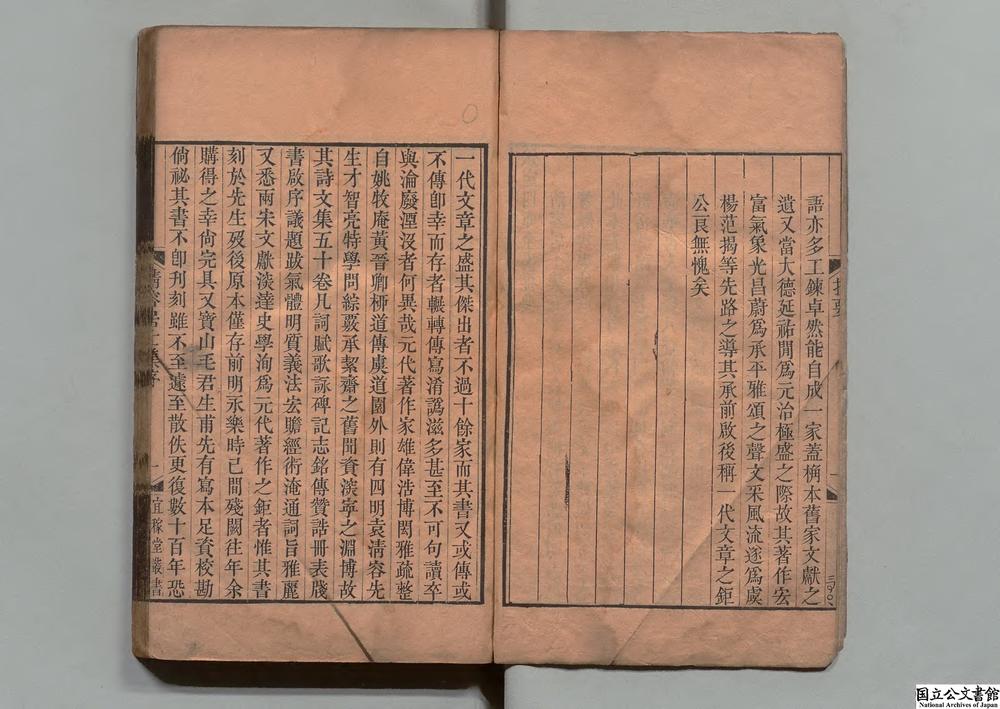 語亦多工鍊卓然能自成一家蓋桷本舊家文獻之
遺又當大德延祐閒爲元治極盛之際故其著作宏
富氣象光昌蔚爲承平雅頌之聲文采風流遂爲虞
楊范揭等先路之導其承前啟後稱一代文章之鉅
公良無愧矣
提要
一代文章之盛其傑出者不過十餘家而其書又或傳或
不傳卽幸而存者輾轉傳寫淆譌滋多甚至不可句讀卒
與淪廢湮沒者何異哉元代著作家雄偉浩博閎雅疏整
自姚牧庵黃晉卿栁道傳虞道園外則有四明袁淸容先
生才智亮特學問綜覈承絜齋之舊聞資淡寧之淵博故
其詩文集五十卷凡詞賦歌詠碑記志銘傳贊誥冊表牋
書啟序議題跋氣體明質義法宏贍經術淹通詞旨雅麗
又悉兩宋文獻淡達史學洵爲元代著作之鉅者惟其書
刻於先生歿後原本僅存前明永樂時已閒殘闕往年余
購得之幸尙完具又寶山毛君生甫先有寫本足資校勘
倘祕其書不卽刊刻雖不至遽至散佚更復數十百年恐
淸容居士集序
一
宜稼堂叢書
国立公文書館
National Archives of Japan